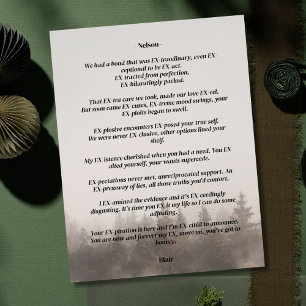 - Nelson -
We had a bond that was EX-traordinary, even EX-
ceptional to be EX-act.
EX-tracted from perfection,
EX-hilaratingly packed.
That EX-tra care we took, made our love EX-cel.
But soon came EX-cuses, EX-treme mood swings, your
EX-ploits began to swell.
EX-plosive encounters EX-posed your true self.
We were never EX-clusive, other options lined your
shelf.
My EX-istence cherished when you had a need. You EX-
alted yourself, your wants supercede.
EX-pectations never met, unreciprocated support. An
EX-pressway of lies, all those truths you'd contort.
I EX-amined the evidence and it's EX-ceedingly
disgusting, it's time you EX-it my life so I can do some
adjusting.
Your EX-piration is here and I'm EX-cited to announce.
You are now and forever my EX, move on, you've got to
bounce.
Blair